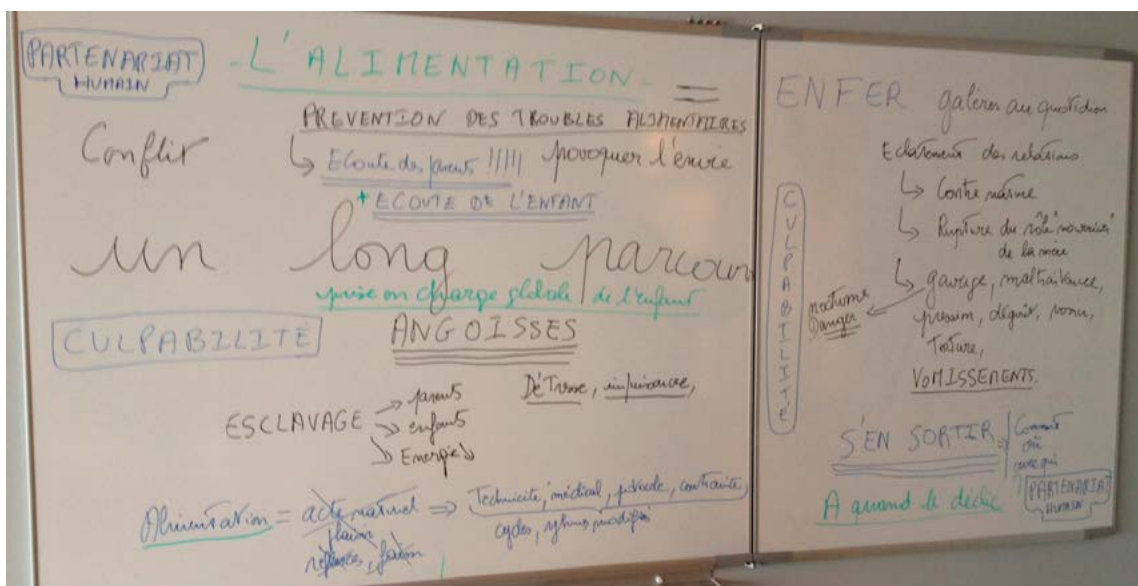 PARTENARIAT
HUMAIN
- L'ALIMENTATION - =
PREVENTION DES TROUBLES ALIMENTAIRES
Conflit
↳ Ecoute des parents !!!!! povoquer l'envie
+ ECOUTE DE L'ENFANT
un long parcours
prise en charge globale de l'enfant
CULPABILITÉ
ANGOISSES
Détresse, impuissance,
ESCLAVAGE → parents
→ enfants
→ Energie
Alimentation = acte naturel ⇒ Technicité, médical, protocole, contrainte,
plaisir cycles, rythmes modifiés
ENFER galères au quotidien
Eclatement des relations
↳ Contre nature
↳ Rupture du rôle "nourricier"
de la mère
↳ gavage, maltraitance,
nocturne
Danger
pression, dégoût,
Torture,
VOMISSEMENTS.
CULPABILITE
S'EN SORTIR ⇒ Comment
où
avec qui
?
A quand le déclic
PARTENARIAT
HUMAIN